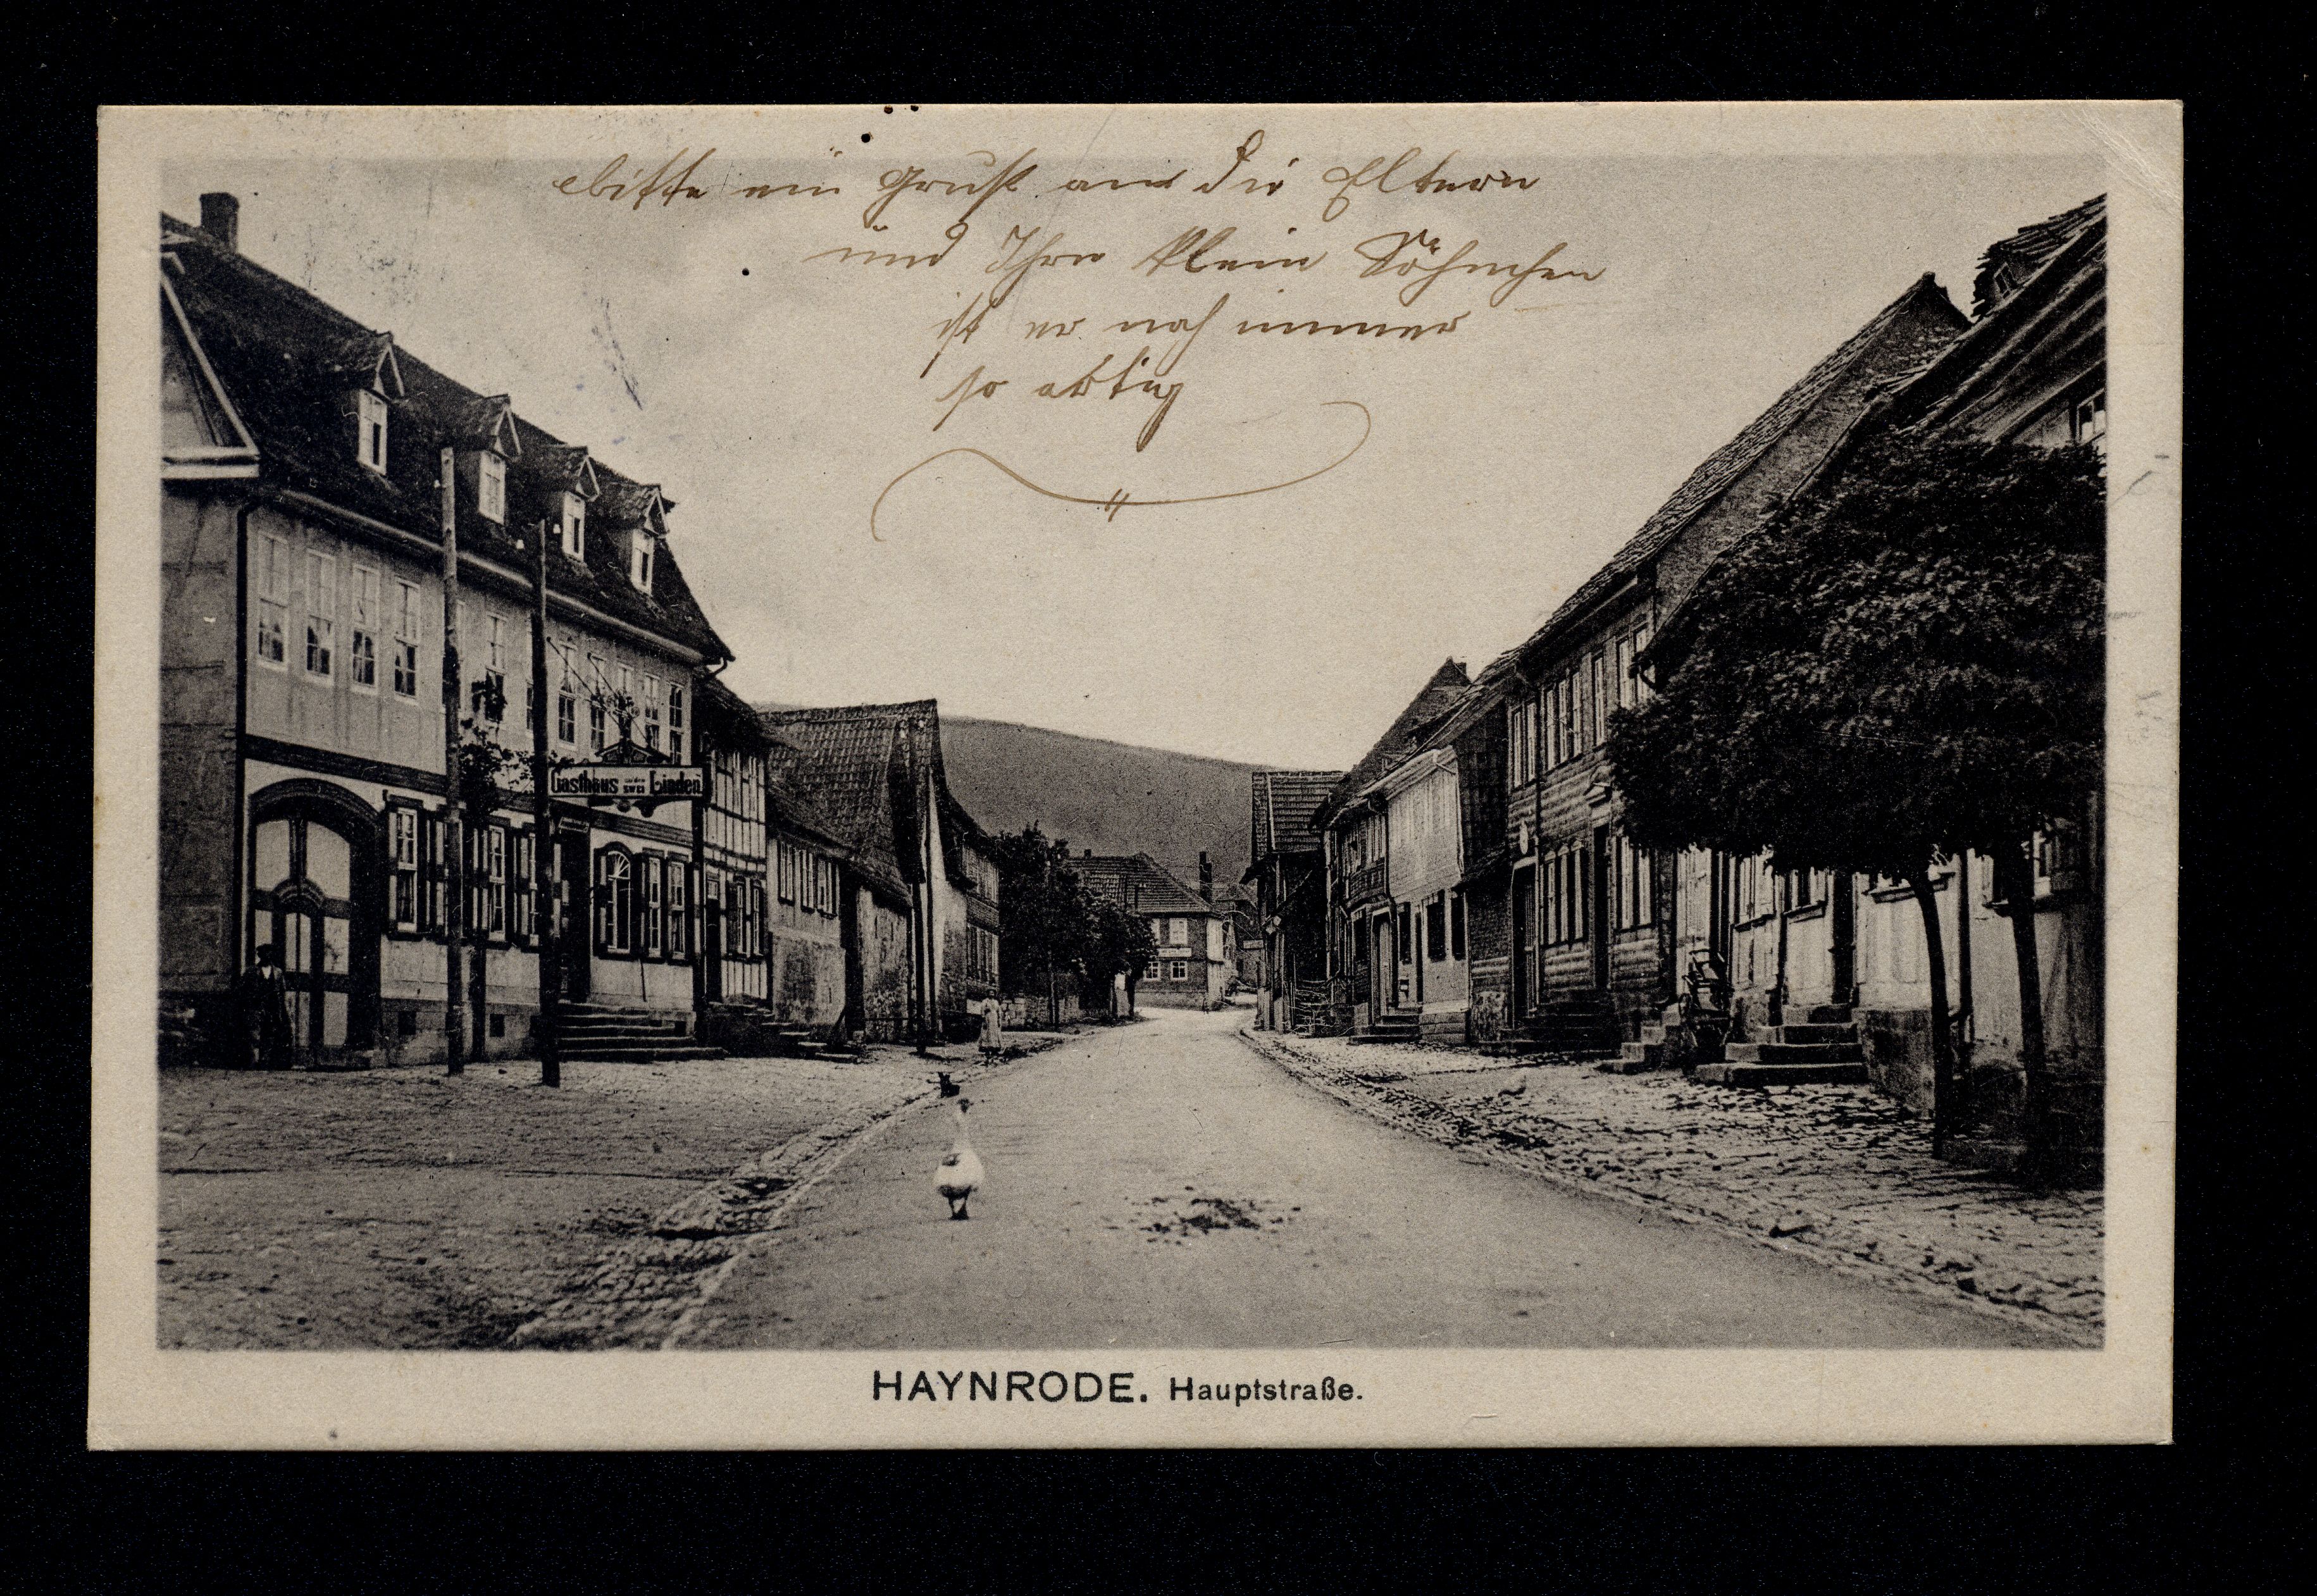 bitte ein Gruß an die Eltern
und Ihre klein Söhnchen
ist er noch immer
so artig
Gasthaus zu den zwei Linden
HAYNRODE. Hauptstraße.